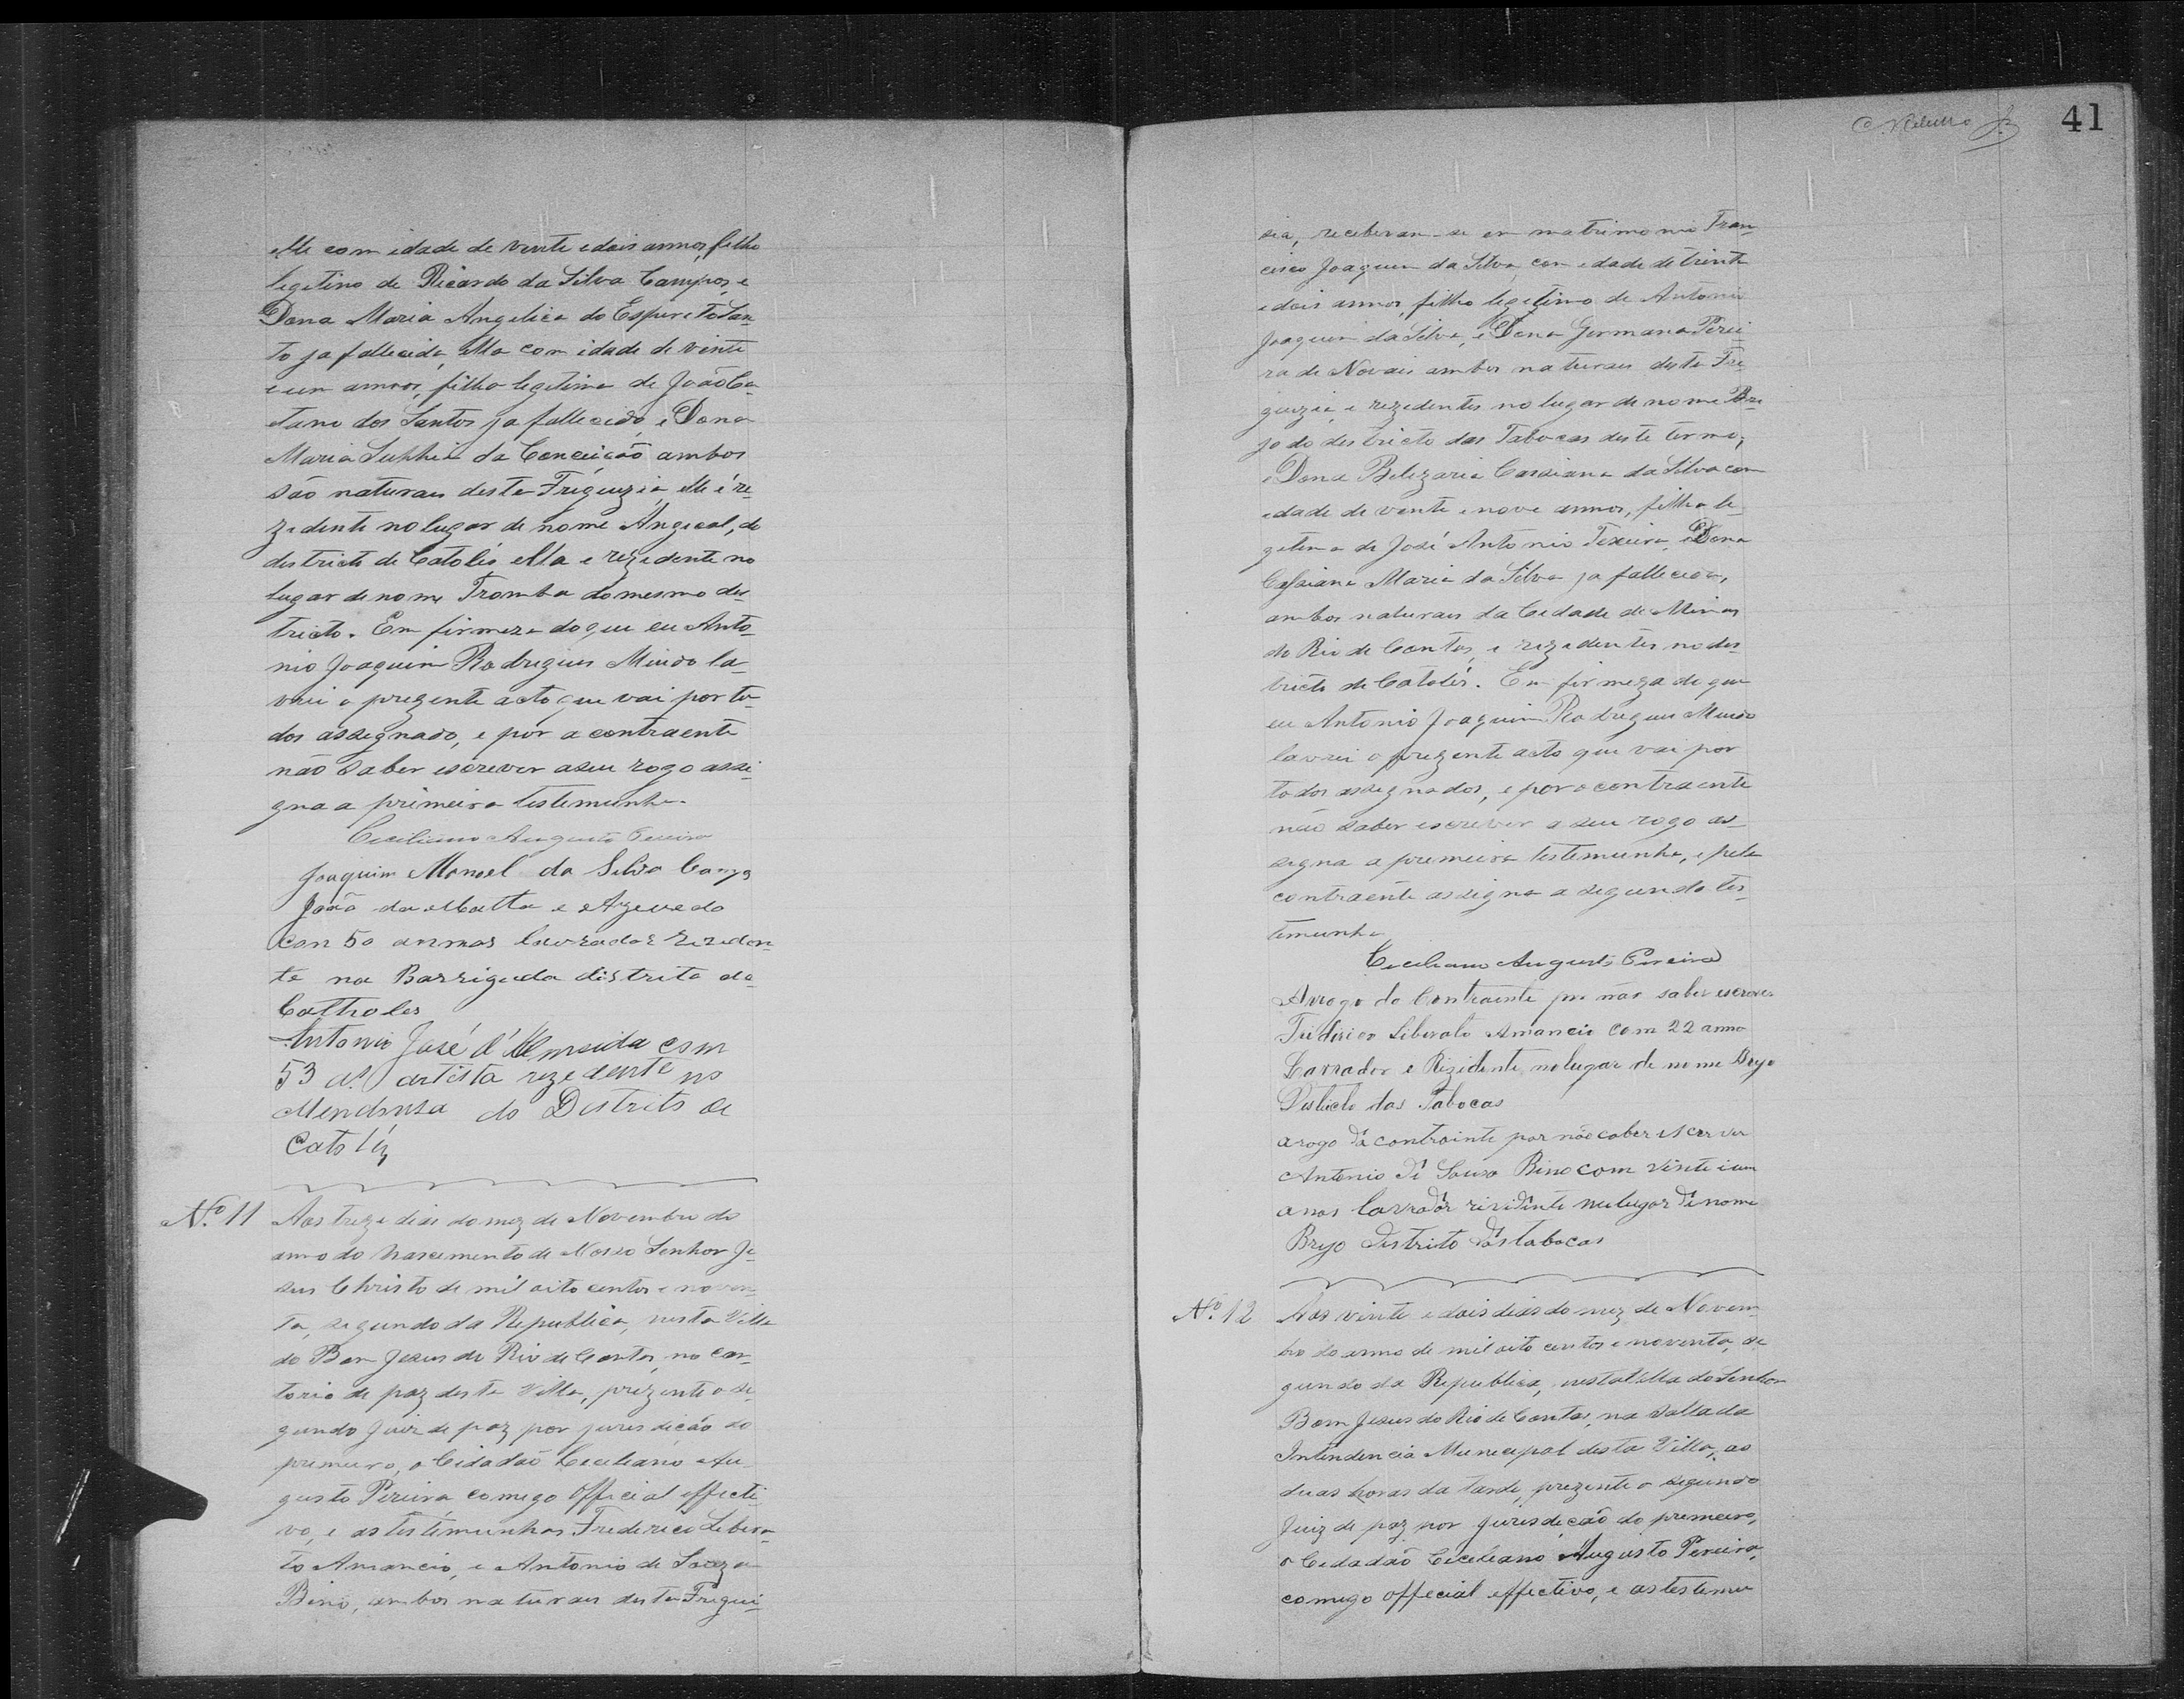 elle com idade de vinte e dois annos, filho
legitimo de Ricardo da Silva Campos, e
Dona Maria Angelica do Esperito San-
to ja fallecida, ella com idade de vinte
e um annos, filha legitima de João Ca-
etano dos Santos ja fallecido, e Dona
Maria da Conceição ambos
são naturaes desta Freguezia, elle é re-
zidente no lugar de nome Angecal, do
destricto de Catolés, ella e rezedente no
lugar de nome Tromba do mesmo des-
tricto. Em firmeza do que eu Anto-
nio Joaquim Rodrigues Mindo la-
vrei o prezente acto que vai por to-
dos assegnado, e por a contraente
não saber escrever a seu rogo assi-
gna a primeira testemunha.
Ceciliano Augusto Pereira
Joaquim Manoel da Silva Campos
João da Matta e Azevedo
Con 50 annos lavrador rezeden-
te na Barriguda distrito de
Catholes
Antonio José d'Almeida com
53 as. artista rezedente no
Mendonsa do Destrito de
Catolés
Nº. 11 Aos treze dias do mez de Novembro do
anno do nascimento de Nosso Senhor Je-
sus Christo de mil oito centos e noven-
ta, segundo da Republica, nesta Villa
do Bom Jesus do Rio de Contas, no car-
torio de paz desta Villa, prezente o se-
gundo juiz de paz por juresdicão do
primeiro, o Cidadão Ceciliano Au-
gusto Pereira, comego Official effecti-
vo, e as testemunhas Frederico Libera-
to Amancio, e Antonio de Souza
Bino, ambos naturaes desta Fregue-
41
sia, receberam-se em matrimonio Fran-
cisco Joaquim da Silva, com edade de trinta
e dois annos, filho legetimo de Antonio
Joaquim da Silva, e Dona Germana Perei-
ra de Novais ambos naturaes desta Fre-
guezia, e rezedentes no lugar de nome Bre-
jo do destricto das Tabocas deste termo;
e Dona Belizaria Cassiana da Silva com
edade de vente e nove annos, filha le-
getima de José Antonio Texeira, e Dona
Cassiana Maria da Silva ja fallecida,
ambos naturaes da Cedade de Minas
do Rio de Contas, e rezedentes no des-
tricto de Catolés. Em firmeza do que
eu Antonio Joaquim Rodrigues Mindo
lavrei o prezente acto que vai por
todos assegnados, e por o contraente
não saber escrever a seu rogo as-
segna a premeira testemunha, e pela
contraente assegna a segunda tes-
temunha
Ceciliano Augusto Pereira
Arrogo do Contraente por não saber escrever
Friderico Liberato Amancio com 22 anno
Lavrador e Rezidente no lugar de nome Brejo
Destricto das Tabocas
arogo da contrainte por não saber escrever
Antonio de Souza Bino com vinte i um
anos lavrador risidente nu lugar de nome
Brejo distrito das tabocas
Nº. 12 Aos vinte e dois dias do mez de Novem-
bro do anno de mil oito centos e noventa, se-
gundo da Republica, nesta Villa do Senhor
Bom Jesus do Rio de Contas, na salla da
Intendencia Municepal desta Villa, as
duas horas da tarde, prezente o segundo
Juiz de paz por jurisdeção do premeiro,
o Cedadão Ceceliano Augusto Pereira,
comego offecial effectivo, e as testemu